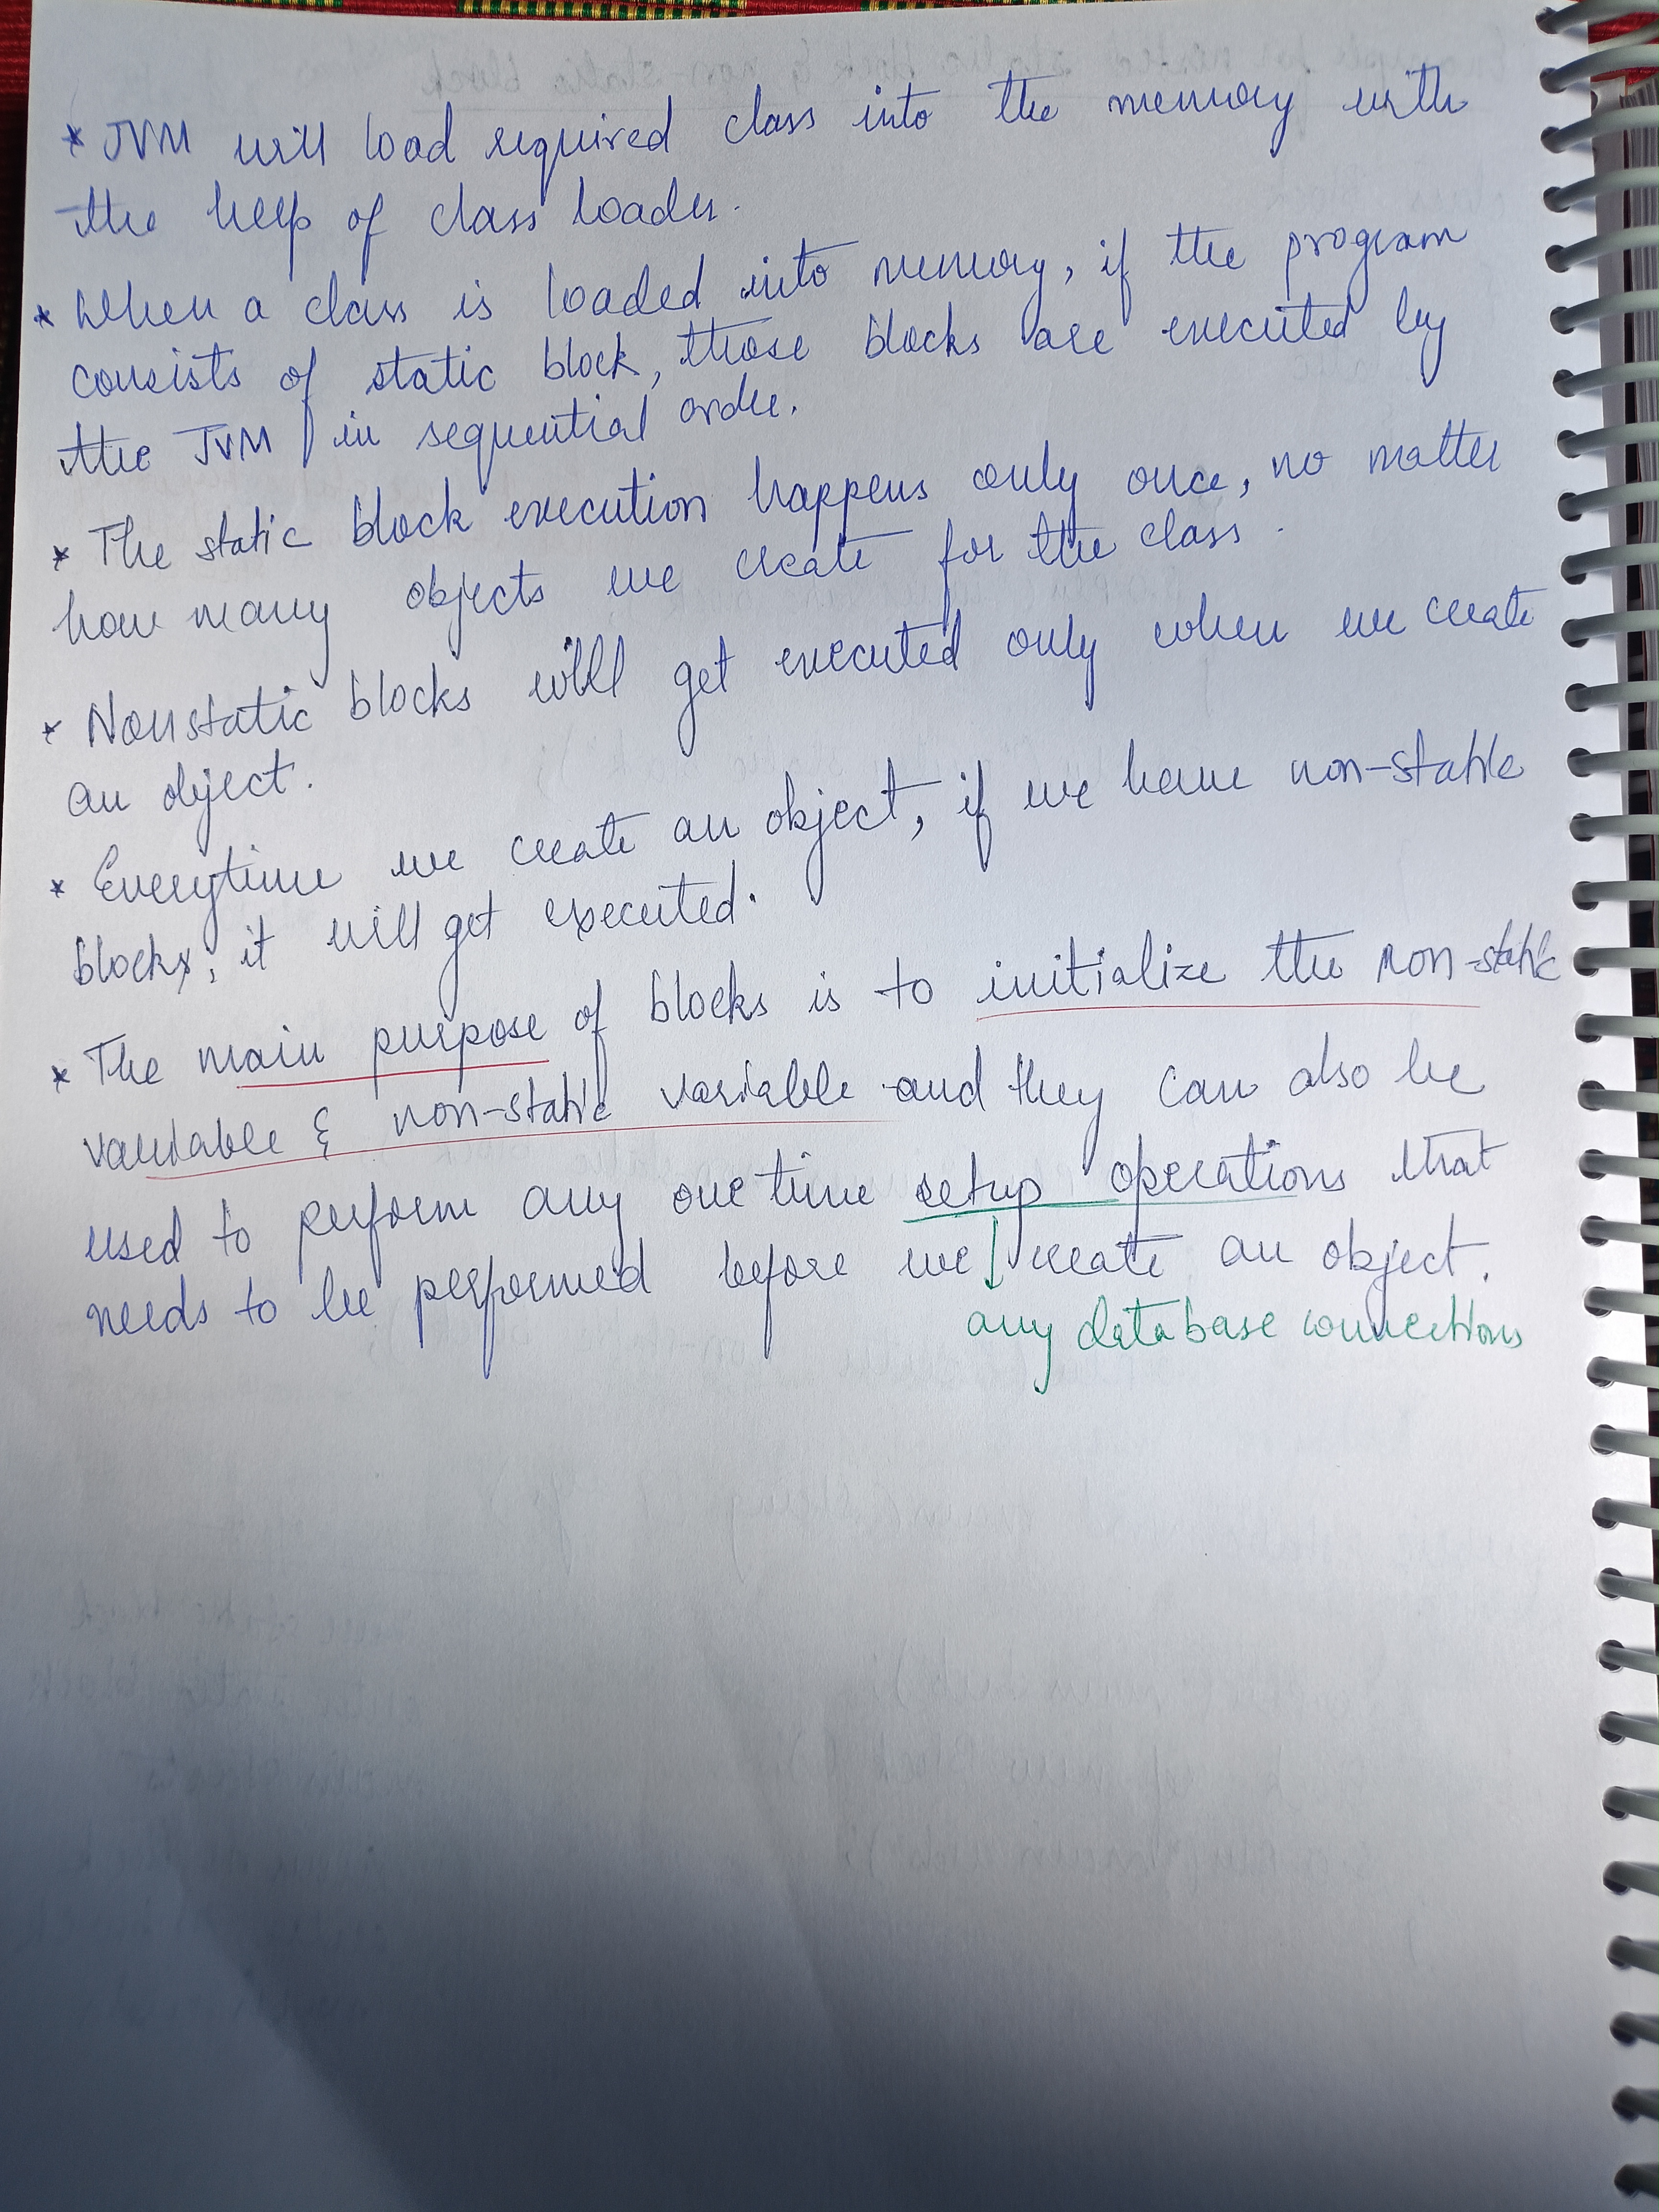 * JVM will load required class into the memory with
the help of class loader.
* When a class is loaded into memory, if the program
consists of static block, those blocks are executed by
the JVM in sequential order.
* The static block execution happens only once, no matter
how many objects we create for the class.
* Nonstatic blocks will get executed only when we create
an object.
* Everytime we create an object, if we have non-stable
blocks, it will get executed.
* The main purpose of blocks is to initialize the non-stable
variable & non-static variable and they can also be
used to perform any one time setup operations that
needs to be performed before we create an object.
any database connections